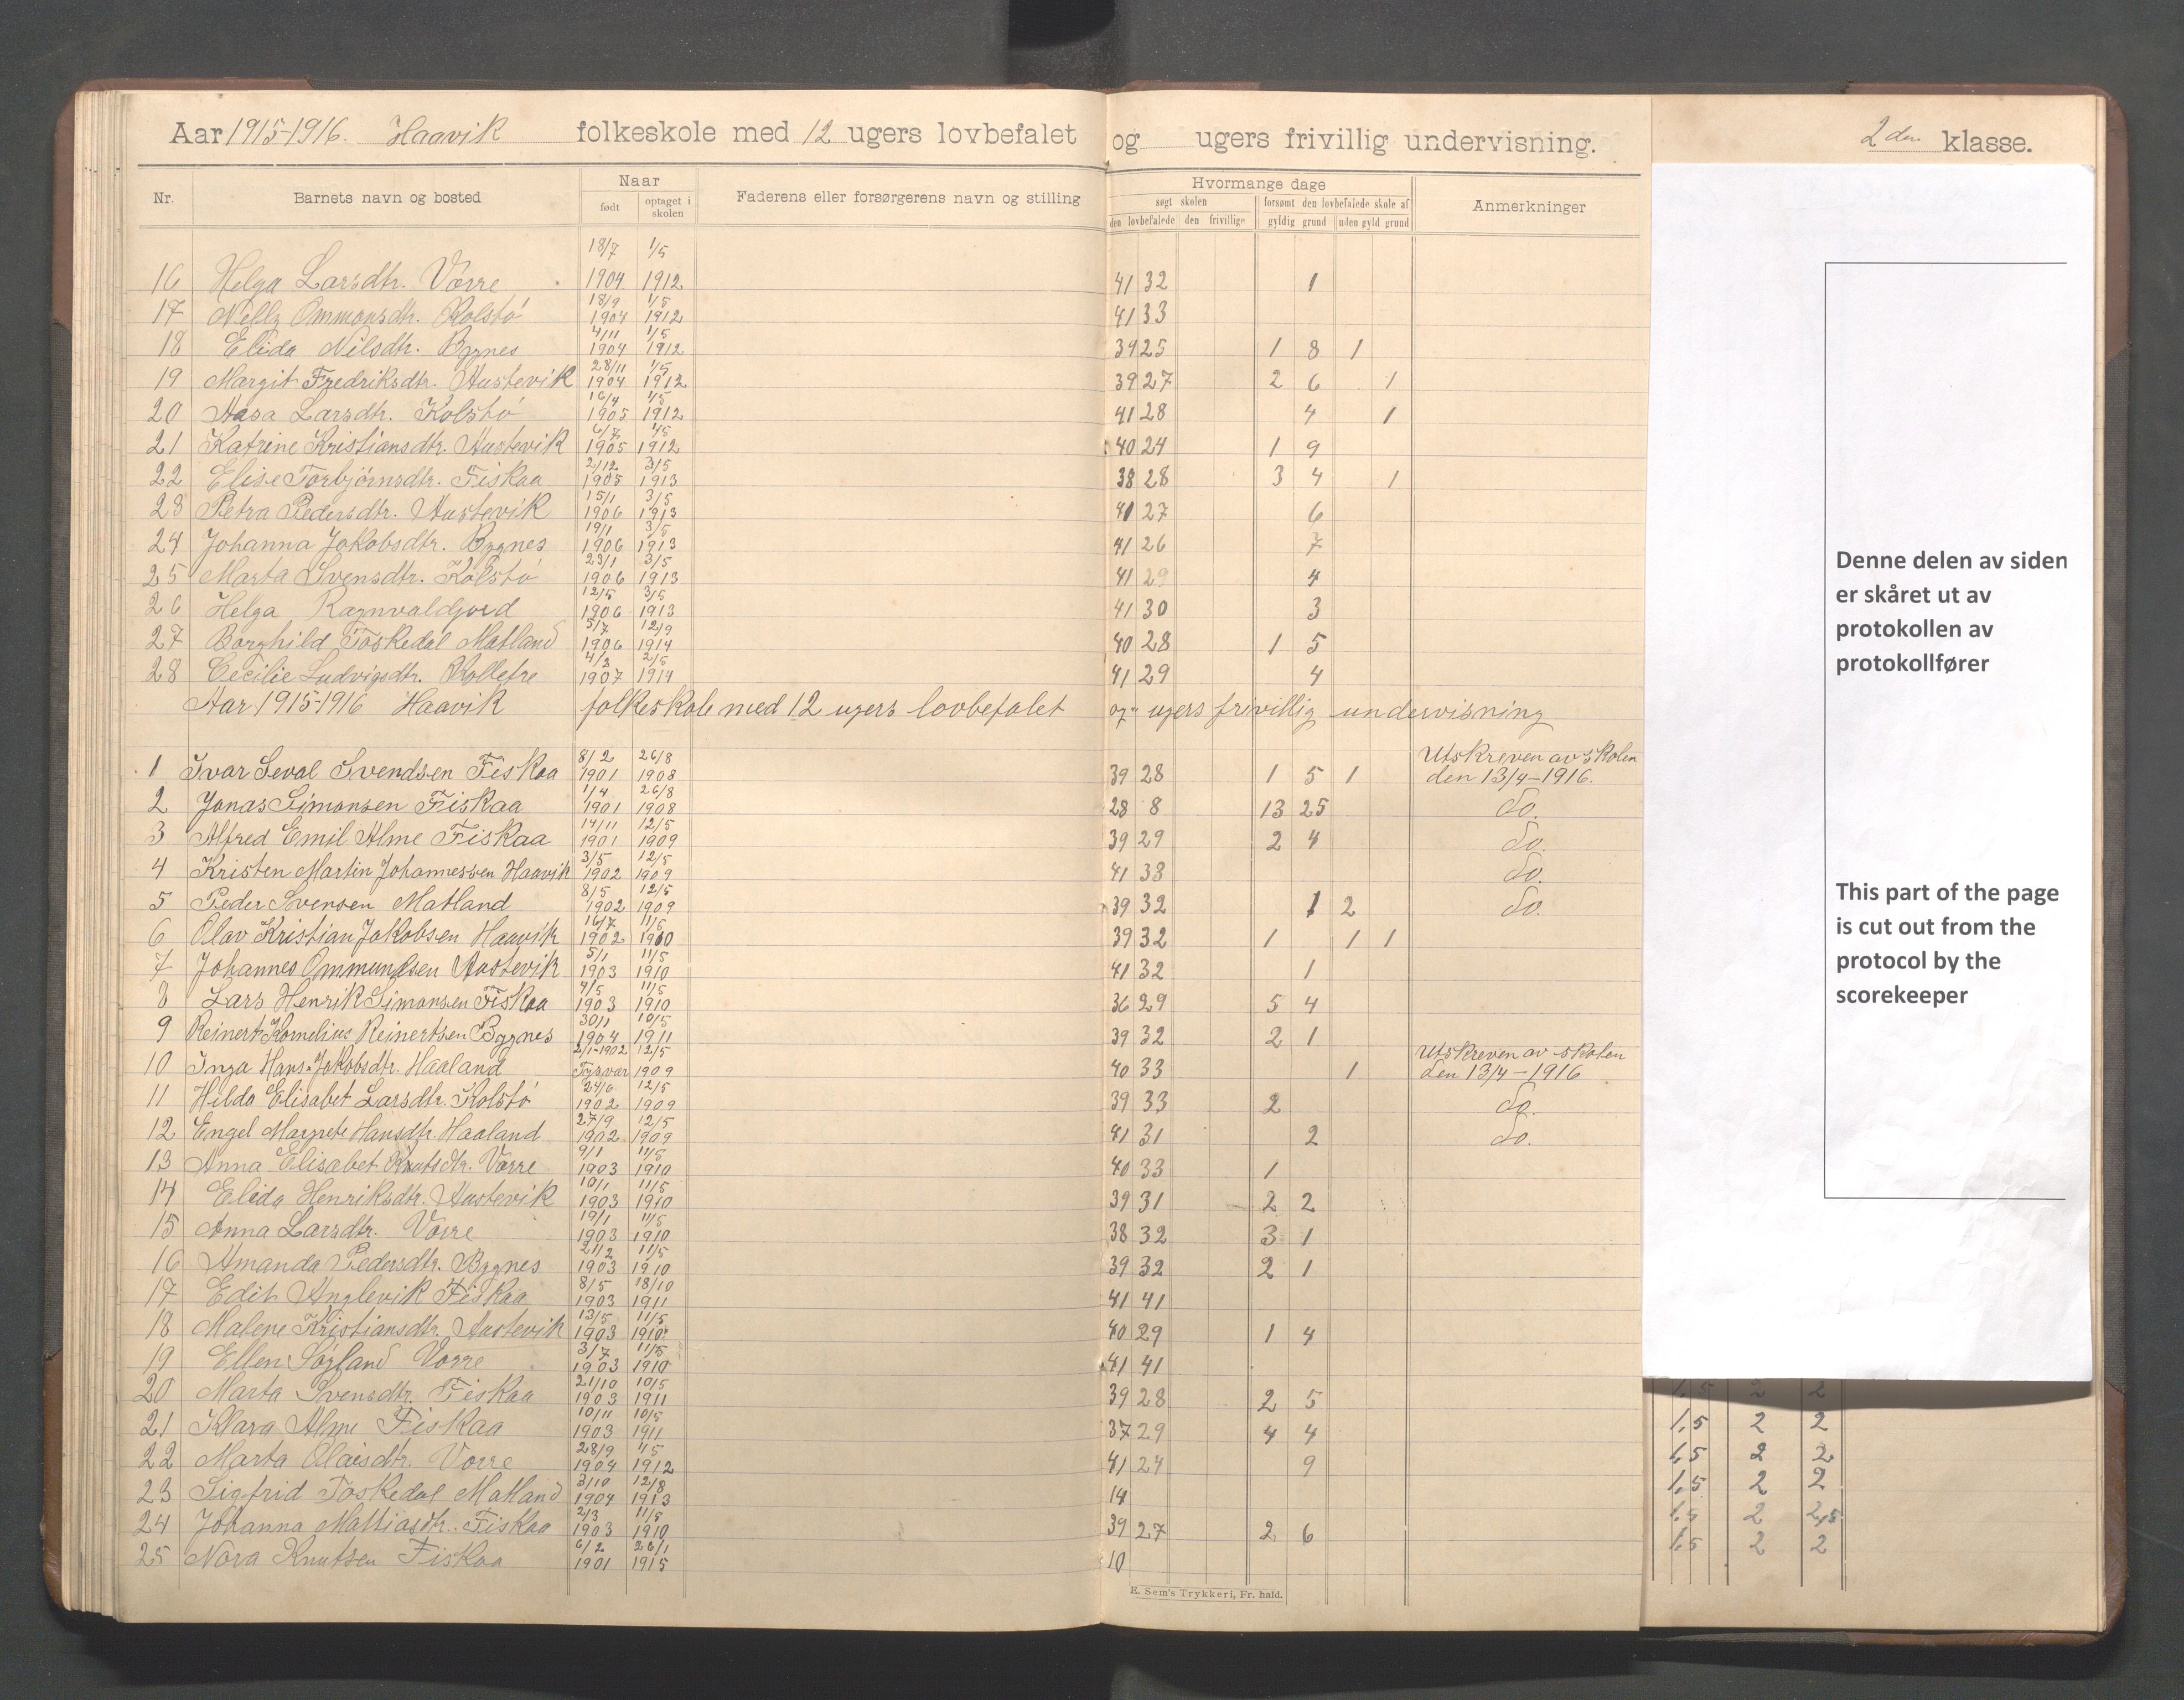 Aar 1915-1916. Haavik folkeskole med 12 ugers lovbefalet og ugers frivillig undervisning. 2den klasse.
Nr. Barnets navn og bosted Naar født optaget i skolen Faderens eller forsørgerens navn og stilling Hvormange dage søgt skolen den lovbefalede den frivillige forsømt den lovbefalede skole af gyldig grund uden gyld grund Anmerkninger
16 Helga Larsdtr. Vorre 18/7 1904 1/5 1912 41 32 1
17 Nelly Ommonsdtr. Kolstø 18/9 1904 1/5 1912 41 33
18 Elida Nilsdtr. Bygnes 4/11 1904 1/5 1912 34 25 1 8 1
19 Margit Fredriksdtr. Austevik 28/11 1904 1/5 1912 39 27 2 6 1
20 Aasa Larsdtr. Kolstø 16/4 1905 1/5 1912 41 28 4 1
21 Katrine Kristiansdtr. Austevik 6/7 1905 1/5 1912 40 24 1 9
22 Elise Torbjørnsdtr. Fiskaa 2/12 1905 3/5 1913 38 28 3 4 1
23 Petra Pedersdtr. Austevik 15/1 1906 3/5 1913 41 27 6
24 Johanna Jakobsdtr. Bygnes 19/1 1906 3/5 1913 41 26 7
25 Marta Svensdtr. Kolstø 23/1 1906 3/5 1913 41 29 4
26 Helga Ragnvaldjord 12/5 1906 3/5 1913 41 30 3
27 Borghild Toskedal Matland 5/7 1906 12/9 1914 40 28 1 5
28 Cecilie Ludvigsdtr. Kolletre 4/2 1907 2/5 1914 41 29 4
Aar 1915-1916 Haavik folkeskole med 12 ugers lovbefalet og " ugers frivillig undervisning
1 Ivar Seval Svendsen Fiskaa 8/2 1901 26/8 1908 39 28 1 5 1 Utskreven av skolen den 13/4-1916.
2 Jonas Simonsen Fiskaa 1/4 1901 26/8 1908 28 8 13 25 Do.
3 Alfred Emil Alme Fiskaa 14/11 1901 12/5 1909 39 29 2 4 Do.
4 Kristen Martin Johannessen Haavik 3/5 1902 12/5 1909 41 33 Do.
5 Peder Svensen Matland 8/5 1902 12/5 1909 39 32 1 2 Do.
6 Olav Kristian Jakobsen Haavik 16/7 1902 11/5 1910 39 32 1 1 1
7 Johannes Ommundsen Austevik 5/1 1903 11/5 1910 41 32 1
8 Lars Henrik Simonsen Fiskaa 4/5 1903 11/5 1910 36 29 5 4
9 Reinert Kornelius Reinertsen Bygnes 30/1 1904 10/5 1911 39 32 2 1
10 Inga Hans-Jakobsdtr. Haaland 2/1-1902 Tysvær 12/5 1909 40 33 1 Utskreven av skolen den 13/4-1916
11 Hilda Elisabet Larsdtr. Kolstø 24/6 1902 12/5 1909 39 33 2 Do.
12 Engel Margrete Hansdtr. Haaland 27/9 1902 12/5 1909 41 31 2 Do.
13 Anna Elisabet Knutsdtr. Vorre 9/1 1903 11/5 1910 40 33 1
14 Elida Henriksdtr. Austevik 10/1 1903 11/5 1910 39 31 2 2
15 Anna Larsdtr. Vorre 19/1 1903 11/5 1910 38 32 3 1
16 Amanda Pedersdtr. Bygnes 21/2 1903 11/5 1910 39 32 2 1
17 Edit Anglevik Fiskaa 8/5 1903 18/10 1911 41 41
18 Malene Kristiansdtr. Austevik 13/5 1903 11/5 1910 40 29 1 4
19 Ellen Sørland Vorre 3/7 1903 11/5 1910 41 41
20 Marta Svensdtr. Fiskaa 21/10 1903 10/5 1911 39 28 2 5
21 Klara Alme Fiskaa 10/11 1903 10/5 1911 37 29 4 4 1,5 2 2
22 Marta Olaisdtr. Vorre 28/9 1904 1/5 1912 41 24 9 1,5 2 2
23 Sigfrid Toskedal Matland 3/10 1904 12/8 1913 14 1,5 2 2
24 Johanna Mattiasdtr. Fiskaa 2/3 1903 11/5 1910 39 27 2 6 1,5 2 2,5
25 Nora Knutsen Fiskaa 6/2 1901 26/1 1915 10 1,5 2 2
E. Sem's Trykkeri, Fr. hald.
Denne delen av siden
er skåret ut av
protokollen av
protokollfører
This part of the page
is cut out from the
protocol by the
scorekeeper